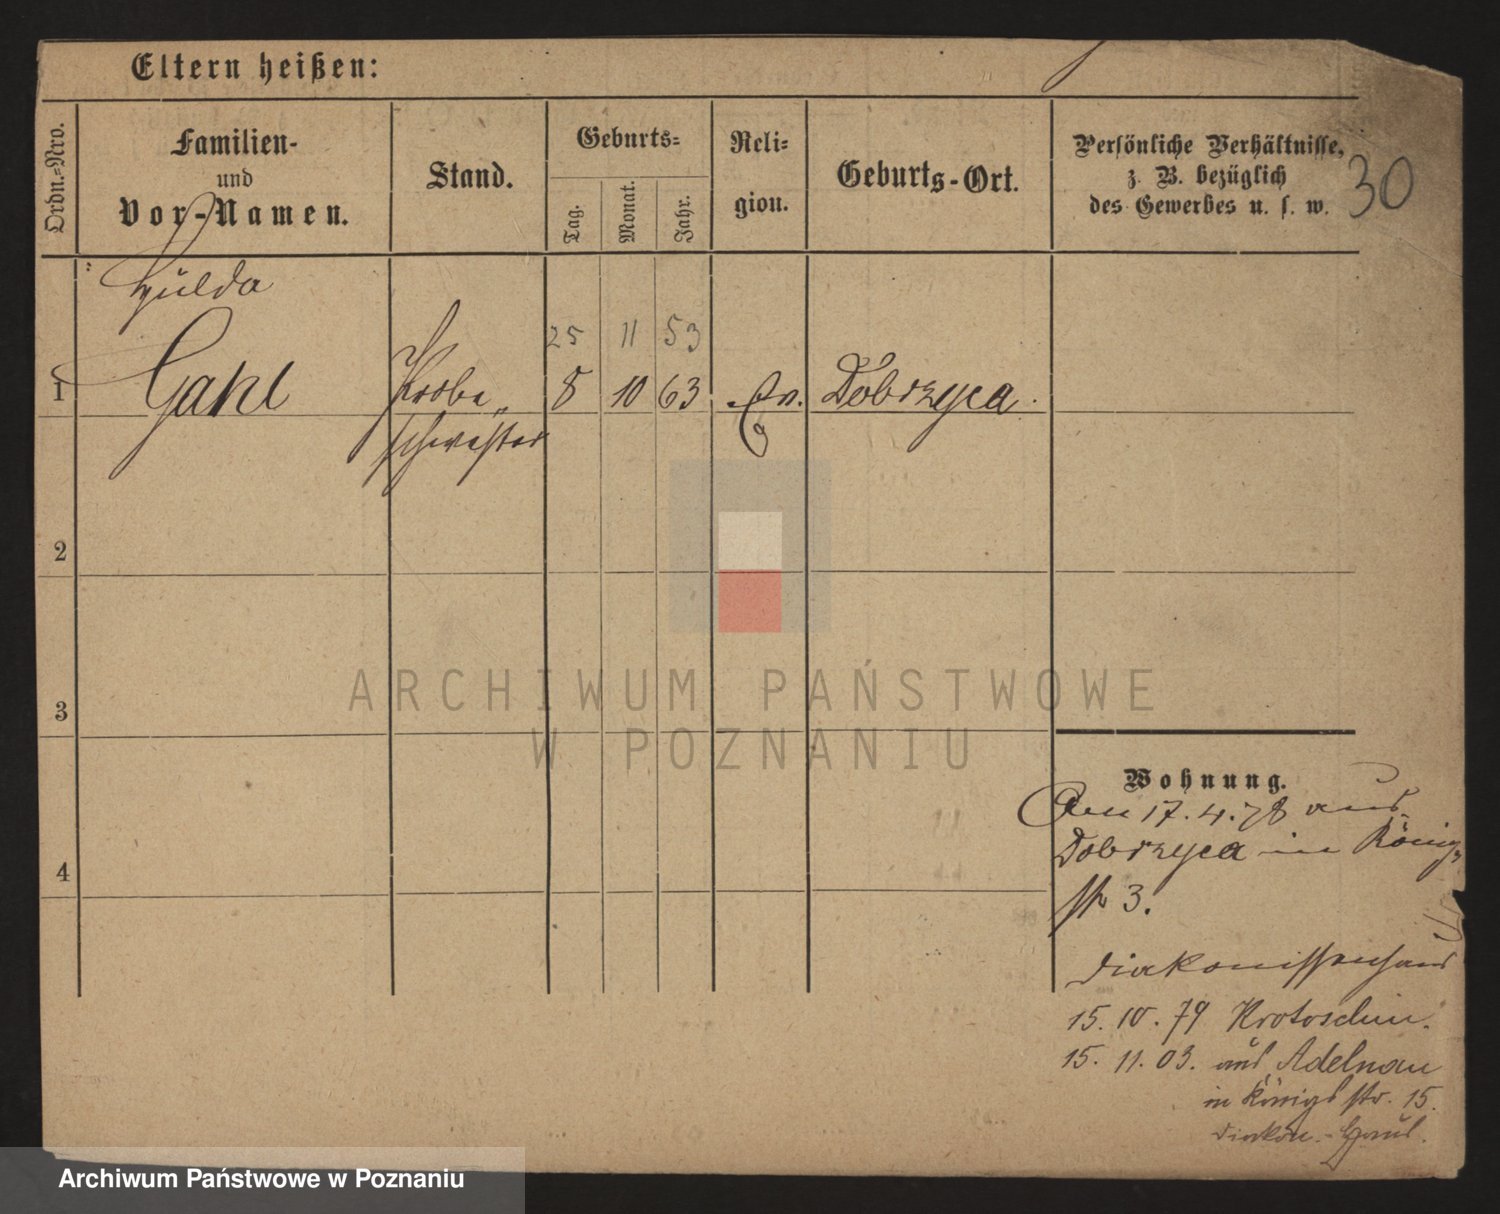 Eltern heißen:
Ordn.-Nro.
Familien-
und
Vor-Namen.
Stand.
Geburts-
Tag.
Monat.
Jahr.
Reli-
gion.
Geburts-Ort.
Persönliche Verhältnisse,
z. B. bezüglich
des Gewerbes u. s. w.
30
Hulda
25 11 53
1 Gahl Probe 8 10 63 Ev. Dobrzyca.
schwester
2
3
4
Wohnung.
Am 17.4.78 aus
Dobrzyca in König
str 3.
Diakonissenhaus
15.10.79 Krotoschin.
15.11.03. aus Adelnau
in Königsstr. 15.
Diakon.-Haus.
ARCHIWUM PAŃSTWOWE
W POZNANIU
Archiwum Państwowe w Poznaniu